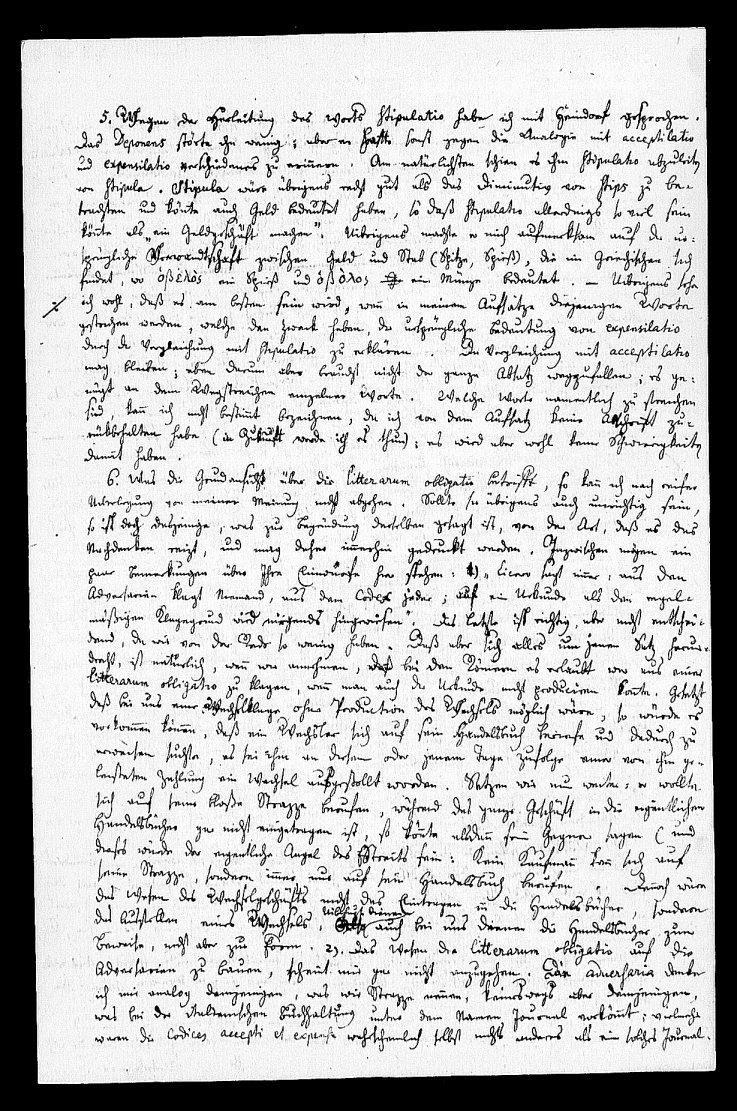 5. Wegen der Herleitung des Worts stipulatio habe ich mit Heindorf gesprochen.
Das Deponens störte ihn wenig; aber er hatte sonst gegen die Analogie mit acceptilatio
und expensilatio verschiedenes zu erinnern. Am natürlichsten schien es ihm stipulatio abzuleiten
von stipula. Stipula wäre übrigens recht gut als das Diminutiv von stips zu be-
trachten und könte auch Geld bedeutet haben, so daß stipulatio allerdings so viel sein
könte als „ein Geldgeschäft machen“. Uibrigens machte er mich aufmerksam auf die ur-
sprüngliche Verwandtschaft zwischen Geld und Stab (Spitze, Spieß), die im Griechischen sich
findet, wo ὀβελός ein Spieß und ὀβολος ein Münze bedeutet. – Uibrigens sehe
ich wohl, daß es am besten sein wird, wenn in meinem Aufsatze diejenigen Worte
gestrichen werden, welche den Zweck haben, die ursprüngliche Bedeutung von expensilatio
durch die Vergleichung mit stipulatio zu erklären. Die Vergleichung mit acceptilatio
mag bleiben; eben darum aber braucht nicht der ganze Absatz wegzufallen; es ge-
nügt an dem Wegstreichen einzelner Worte. Welche Worte namentlich zu streichen
sind, kann ich nicht bestimt bezeichnen, da ich von dem Aufsatz keine Abschrift zu-
rückbehalten habe (in Zukunft werde ich es thun); es wird aber wohl keine Schwierigkeiten
damit haben.
6. Was die Grundansicht über die litterarum obligatio betrifft, so kann ich nach reifer
Ueberlegung von meiner Meinung nicht abgehen. Sollte sie übrigens auch unrichtig sein,
so ist doch dasjenige, was zur Begründung derselben gesagt ist, von der Art, daß es das
Nachdenken reizt, und mag daher immerhin gedruckt werden. Inzwischen mögen ein
paar Bemerkungen über Ihre Einwürfe hier stehen: 1) „Cicero sagt immer: aus den
Adversarien klagt Niemand, aus dem Codex jeder; auf ein Urkunde als den regel-
mäßigen Klagegrund wird nirgends hingewiesen“. Das Letzte ist richtig, aber nicht entschei-
dend, da wir von der Rede so wenig haben. Daß aber sich alles um jenen Satz herum-
dreht, ist natürlich, wenn wir annehmen, daß bei den Römern es erlaubt war aus einer
litterarum obligatio zu klagen, wenn man auch die Urkunde nicht produciren konte. Gesetzt
daß bei uns eine Wechselklage ohne Production des Wechsels möglich wäre, so würde es
vorkommen können, daß ein Wechsler sich auf sein Handelsbuch beriefe und dadurch zu
erweisen suchte, es sei ihm an diesem oder jenem Tage zufolge einer von ihm ge-
leisteten Zahlung ein Wechsel ausgestellt worden. Setzen wir nun weiter: er wollte
sich auf seine bloße Strazze berufen, während das ganze Geschäft in die eigentlichen
Handelsbücher gar nicht eingetragen ist, so könte alsdann sein Gegner sagen (und
dieses würde der eigentliche Angel des Streits sein: Kein Kaufmann kan sich auf
seine Strazze, sondern immer nur auf sein Handelsbuch berufen. Darnach wäre
das Wesen des Wechselgeschäfts nicht das Eintragen in die Handelsbücher, sondern
das Ausstellen eines Wechsels, auch bei uns dienen die Handelsbücher zum
Beweise, nicht aber zur Form. 2). Das Wesen der litterarum obligatio auf die
Adversarien zu bauen, scheint mir gar nicht anzugehen. Die adversaria denke
ich mir analog demjenigen, was wir Strazze nennen, keinesweges aber demjenigen,
was bei der italienischen Buchhaltung unter dem Namen Journal vorkömt; vielmehr
waren die Codices accepti et expensi wahrscheinlich selbst nichts anderes als ein solches Journal.